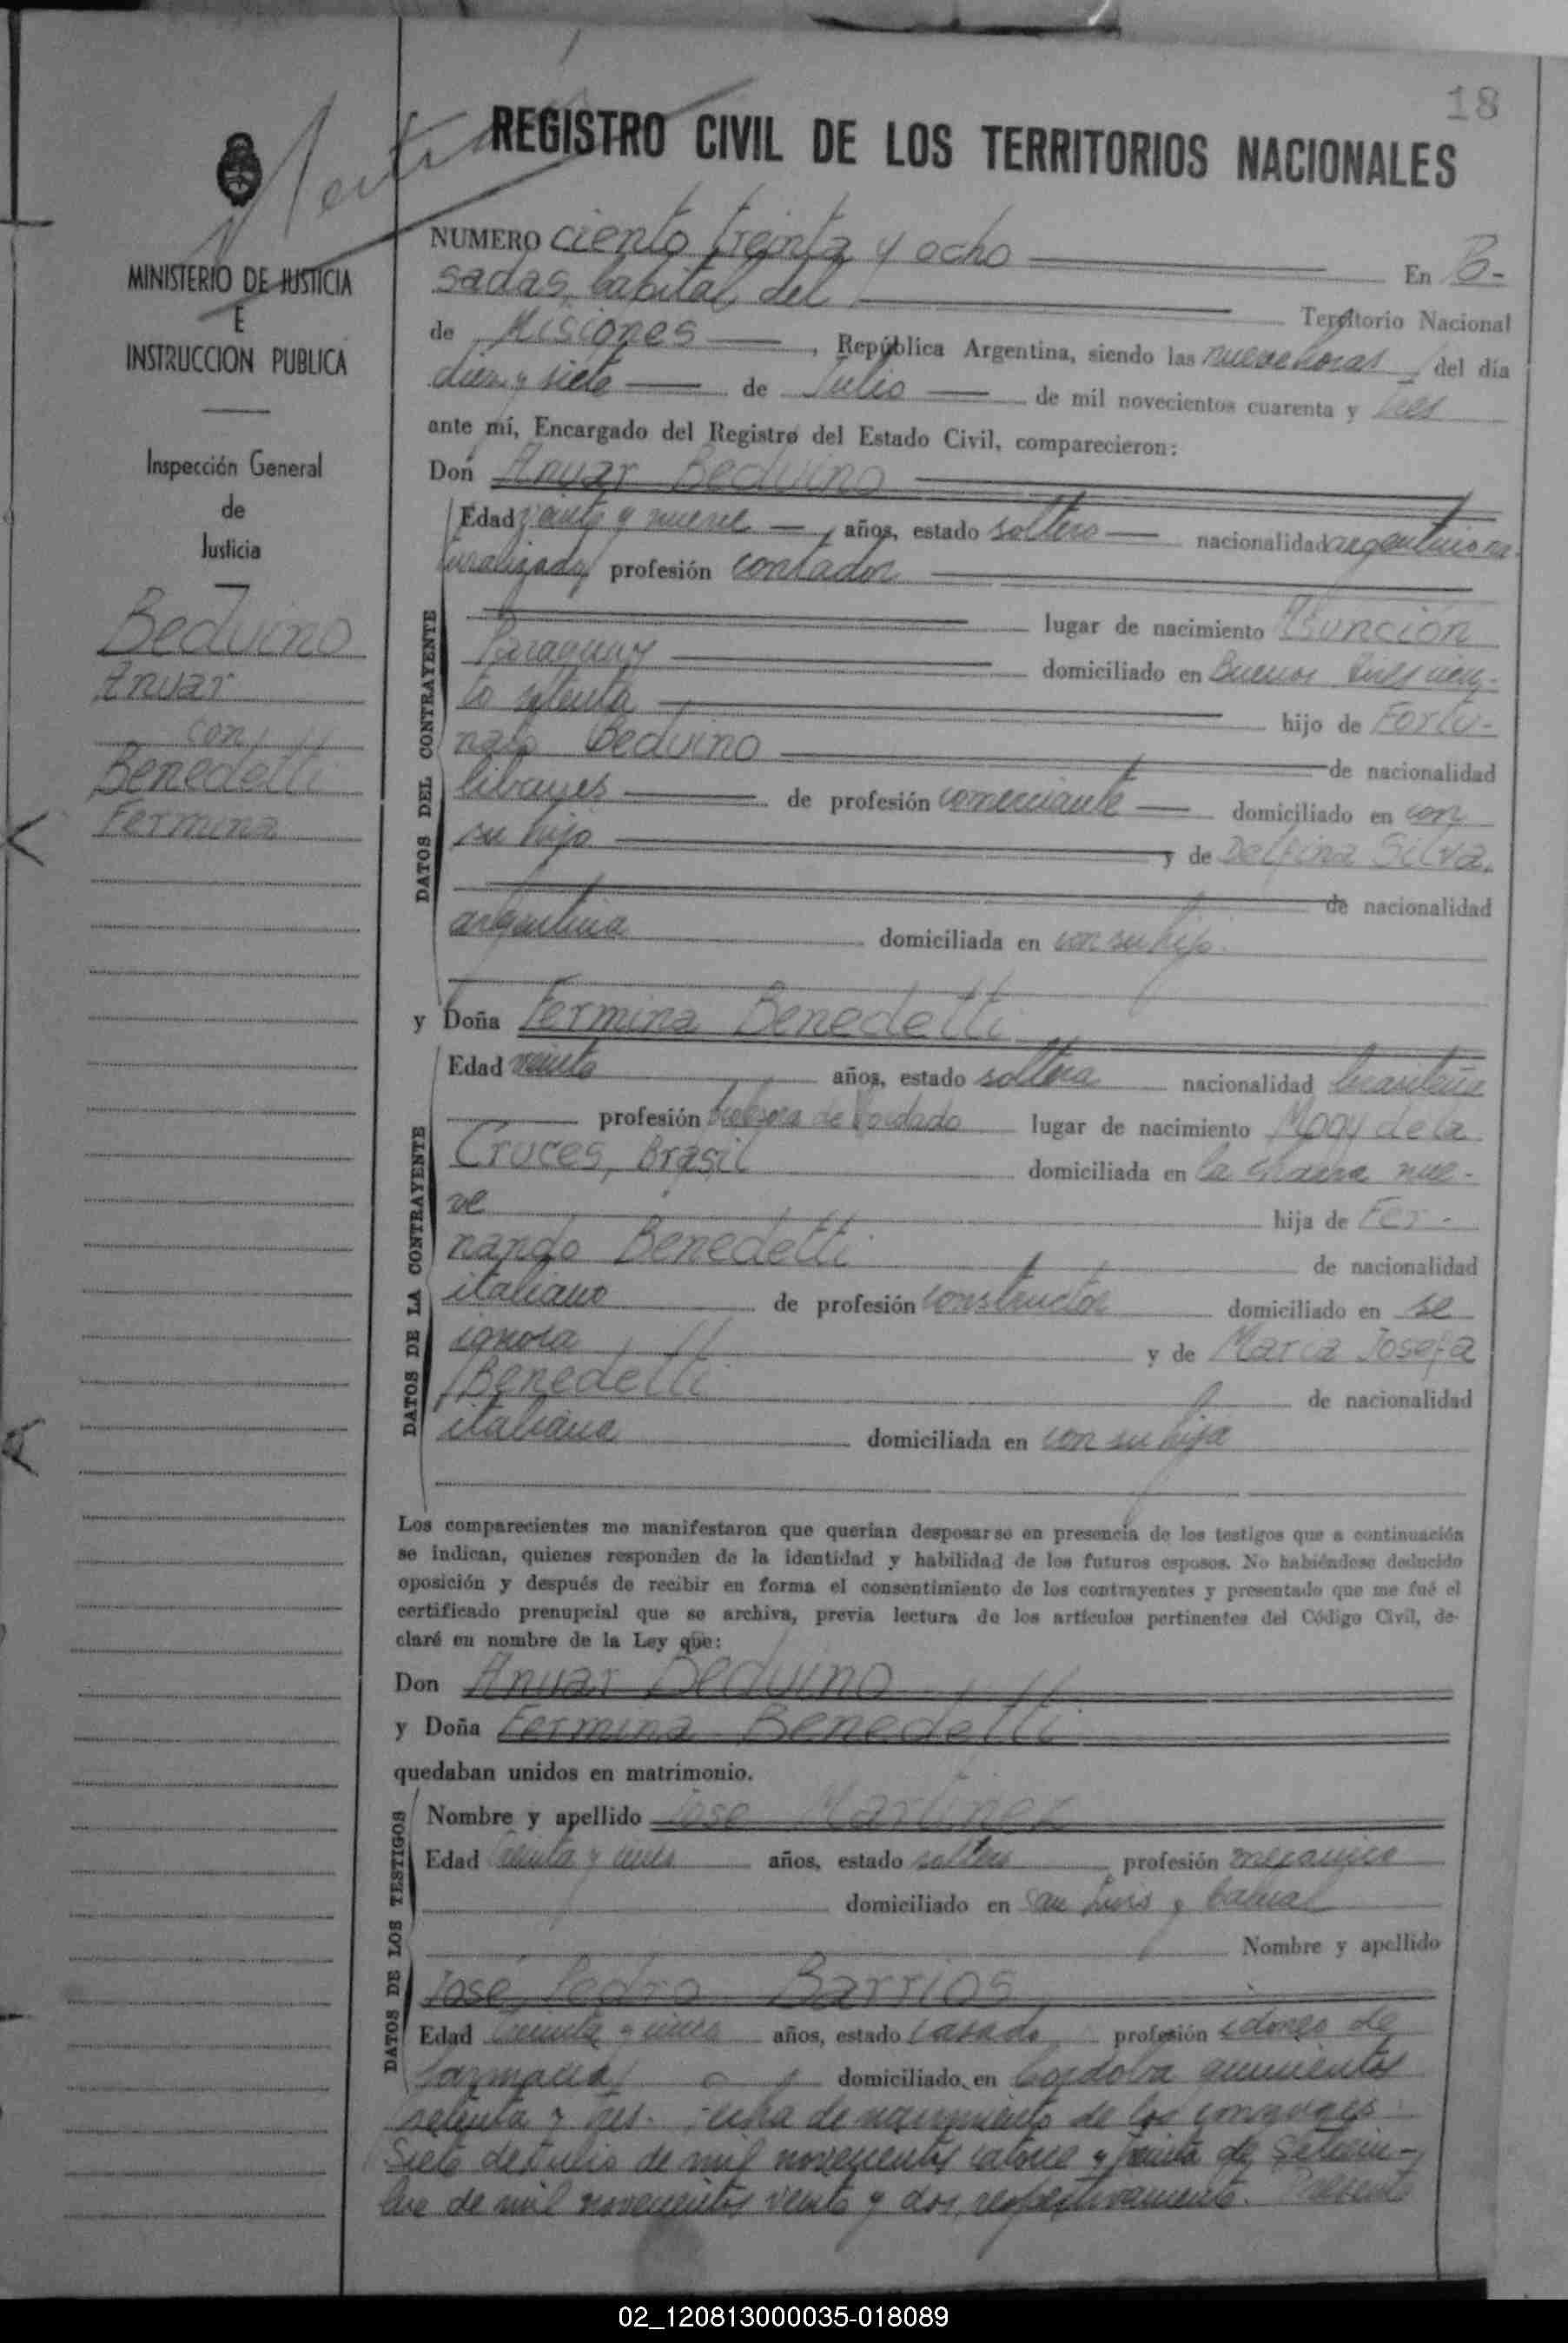 18
REGISTRO CIVIL DE LOS TERRITORIOS NACIONALES
MINISTERIO DE JUSTICIA
E
INSTRUCCION PUBLICA
Inspección General
de
Justicia
Beduino
Anuar
con
Benedetti
Fermina
NUMERO ciento treinta y ocho En Po-
sadas, Capital del Territorio Nacional
de Misiones, República Argentina, siendo las nueve horas del día
diez y siete de Julio de mil novecientos cuarenta y tres
ante mí, Encargado del Registro del Estado Civil, comparecieron:
Don Anuar Beduino
Edad veinte y nueve años, estado soltero nacionalidad argentino na-
turalizado profesión contador
lugar de nacimiento Asunción
Paraguay domiciliado en Buenos Aires cien-
to setenta hijo de Fortu-
nato Beduino de nacionalidad
libanes de profesión comerciante domiciliado en con
su hijo y de Delfina Silva,
de nacionalidad
argentina domiciliada en con su hijo.
y Doña Fermina Benedetti
Edad veinte años, estado soltera nacionalidad brasileña
profesión profesora de bordado lugar de nacimiento Mogy de la
Cruces, Brasil domiciliada en la chacra nue-
ve hija de Fer-
nando Benedetti de nacionalidad
italiano de profesión constructor domiciliado en se
ignora y de Maria Josefa
Benedetti de nacionalidad
italiana domiciliada en con su hija
DATOS DEL CONTRAYENTE
DATOS DE LA CONTRAYENTE
Los comparecientes me manifestaron que querían desposarse en presencia de los testigos que a continuación
se indican, quienes responden de la identidad y habilidad de los futuros esposos. No habiéndose deducido
oposición y después de recibir en forma el consentimiento de los contrayentes y presentado que me fué el
certificado prenupcial que se archiva, previa lectura de los artículos pertinentes del Código Civil, de-
claré en nombre de la Ley que:
Don Anuar Beduino
y Doña Fermina Benedetti
quedaban unidos en matrimonio.
DATOS DE LOS TESTIGOS
Nombre y apellido José Martinez
Edad treinta y años, estado soltero profesión mecanico
domiciliado en San Luis y
Nombre y apellido
José Pedro Barrios
Edad treinta y cinco años, estado casado profesión idoneo de
farmacia domiciliado en Cordoba quinientos
setenta y tres. Fecha de nacimiento de los conyuges:
Siete de Julio de mil novecientos catorce y treinta de Setiem-
bre de mil novecientos veinte y dos, respectivamente. Presente
02_120813000035-018089